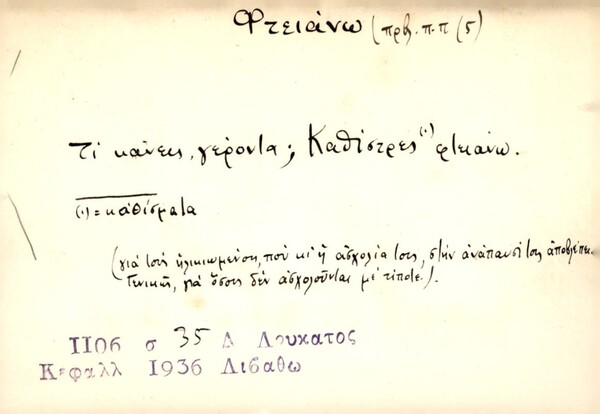 Φτειάνω (πρβ. π.π (5)
Τί κάνεις, γέροντα; Καθίστρες (·) φτειάνω.
(·) = καθίσματα
(γιά τούς ἡλικιωμένους, πού κι' ἡ ἀσχολία τους, στήν ἀνάπαυσί τους ἀποβλέπει.
Γενικῶς, γιά ὅσους δέν ἀσχολοῦνται μέ τίποτε.).
1106 σ 35 Δ Λουκατος
Κεφαλλ 1936 Λιβαθω